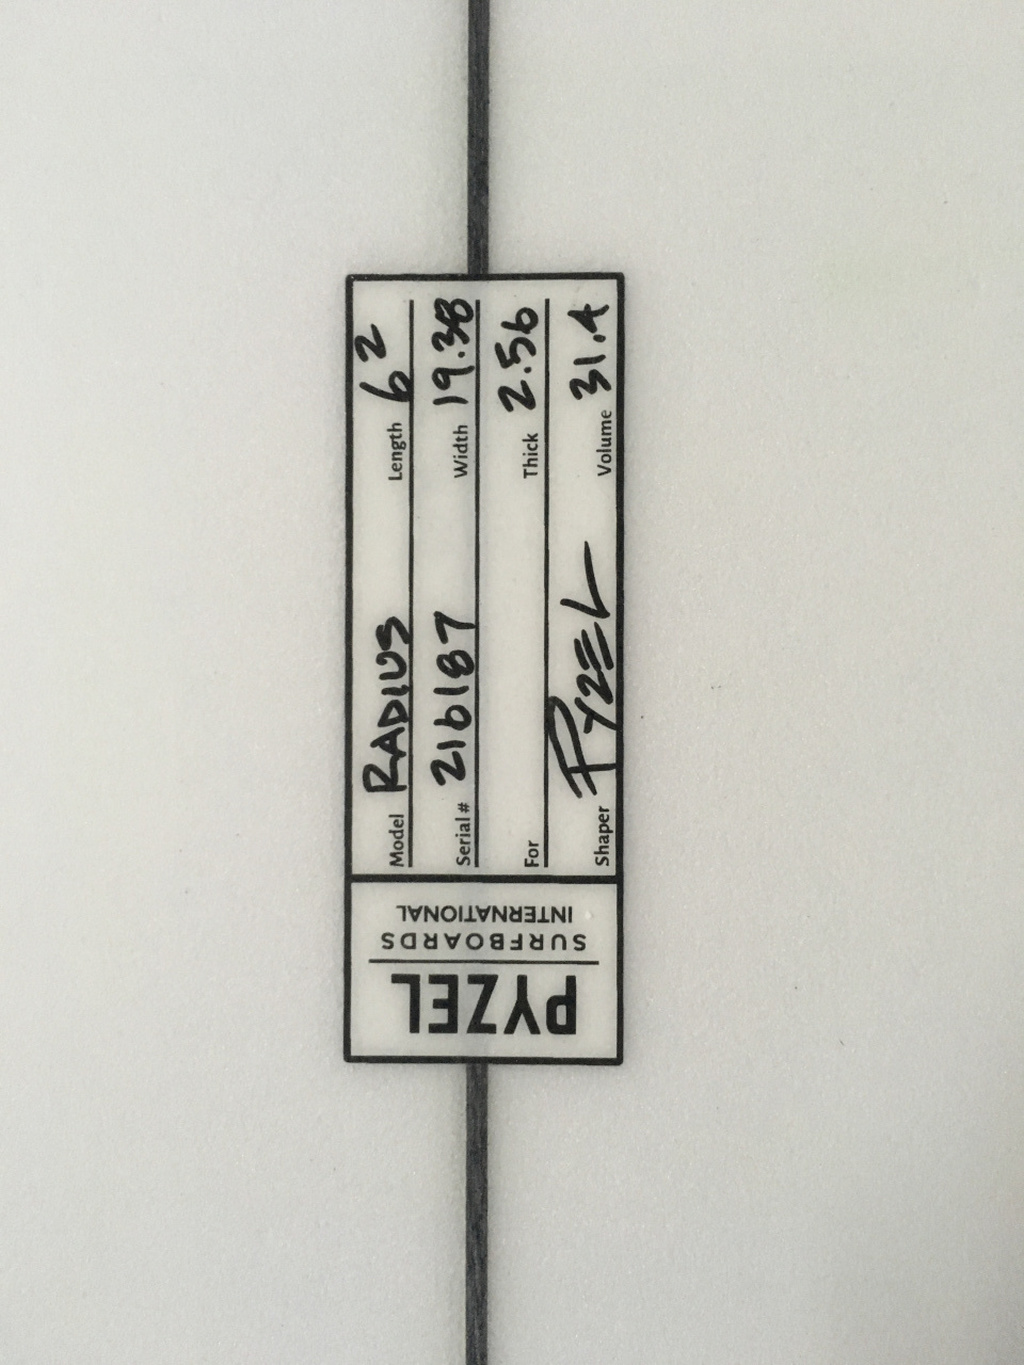 PYZEL
SURFBOARDS
INTERNATIONAL
Model RADIUS Length 6 2
Serial # 216187 Width 19.38
For Thick 2.56
Shaper PYZEL Volume 31.4